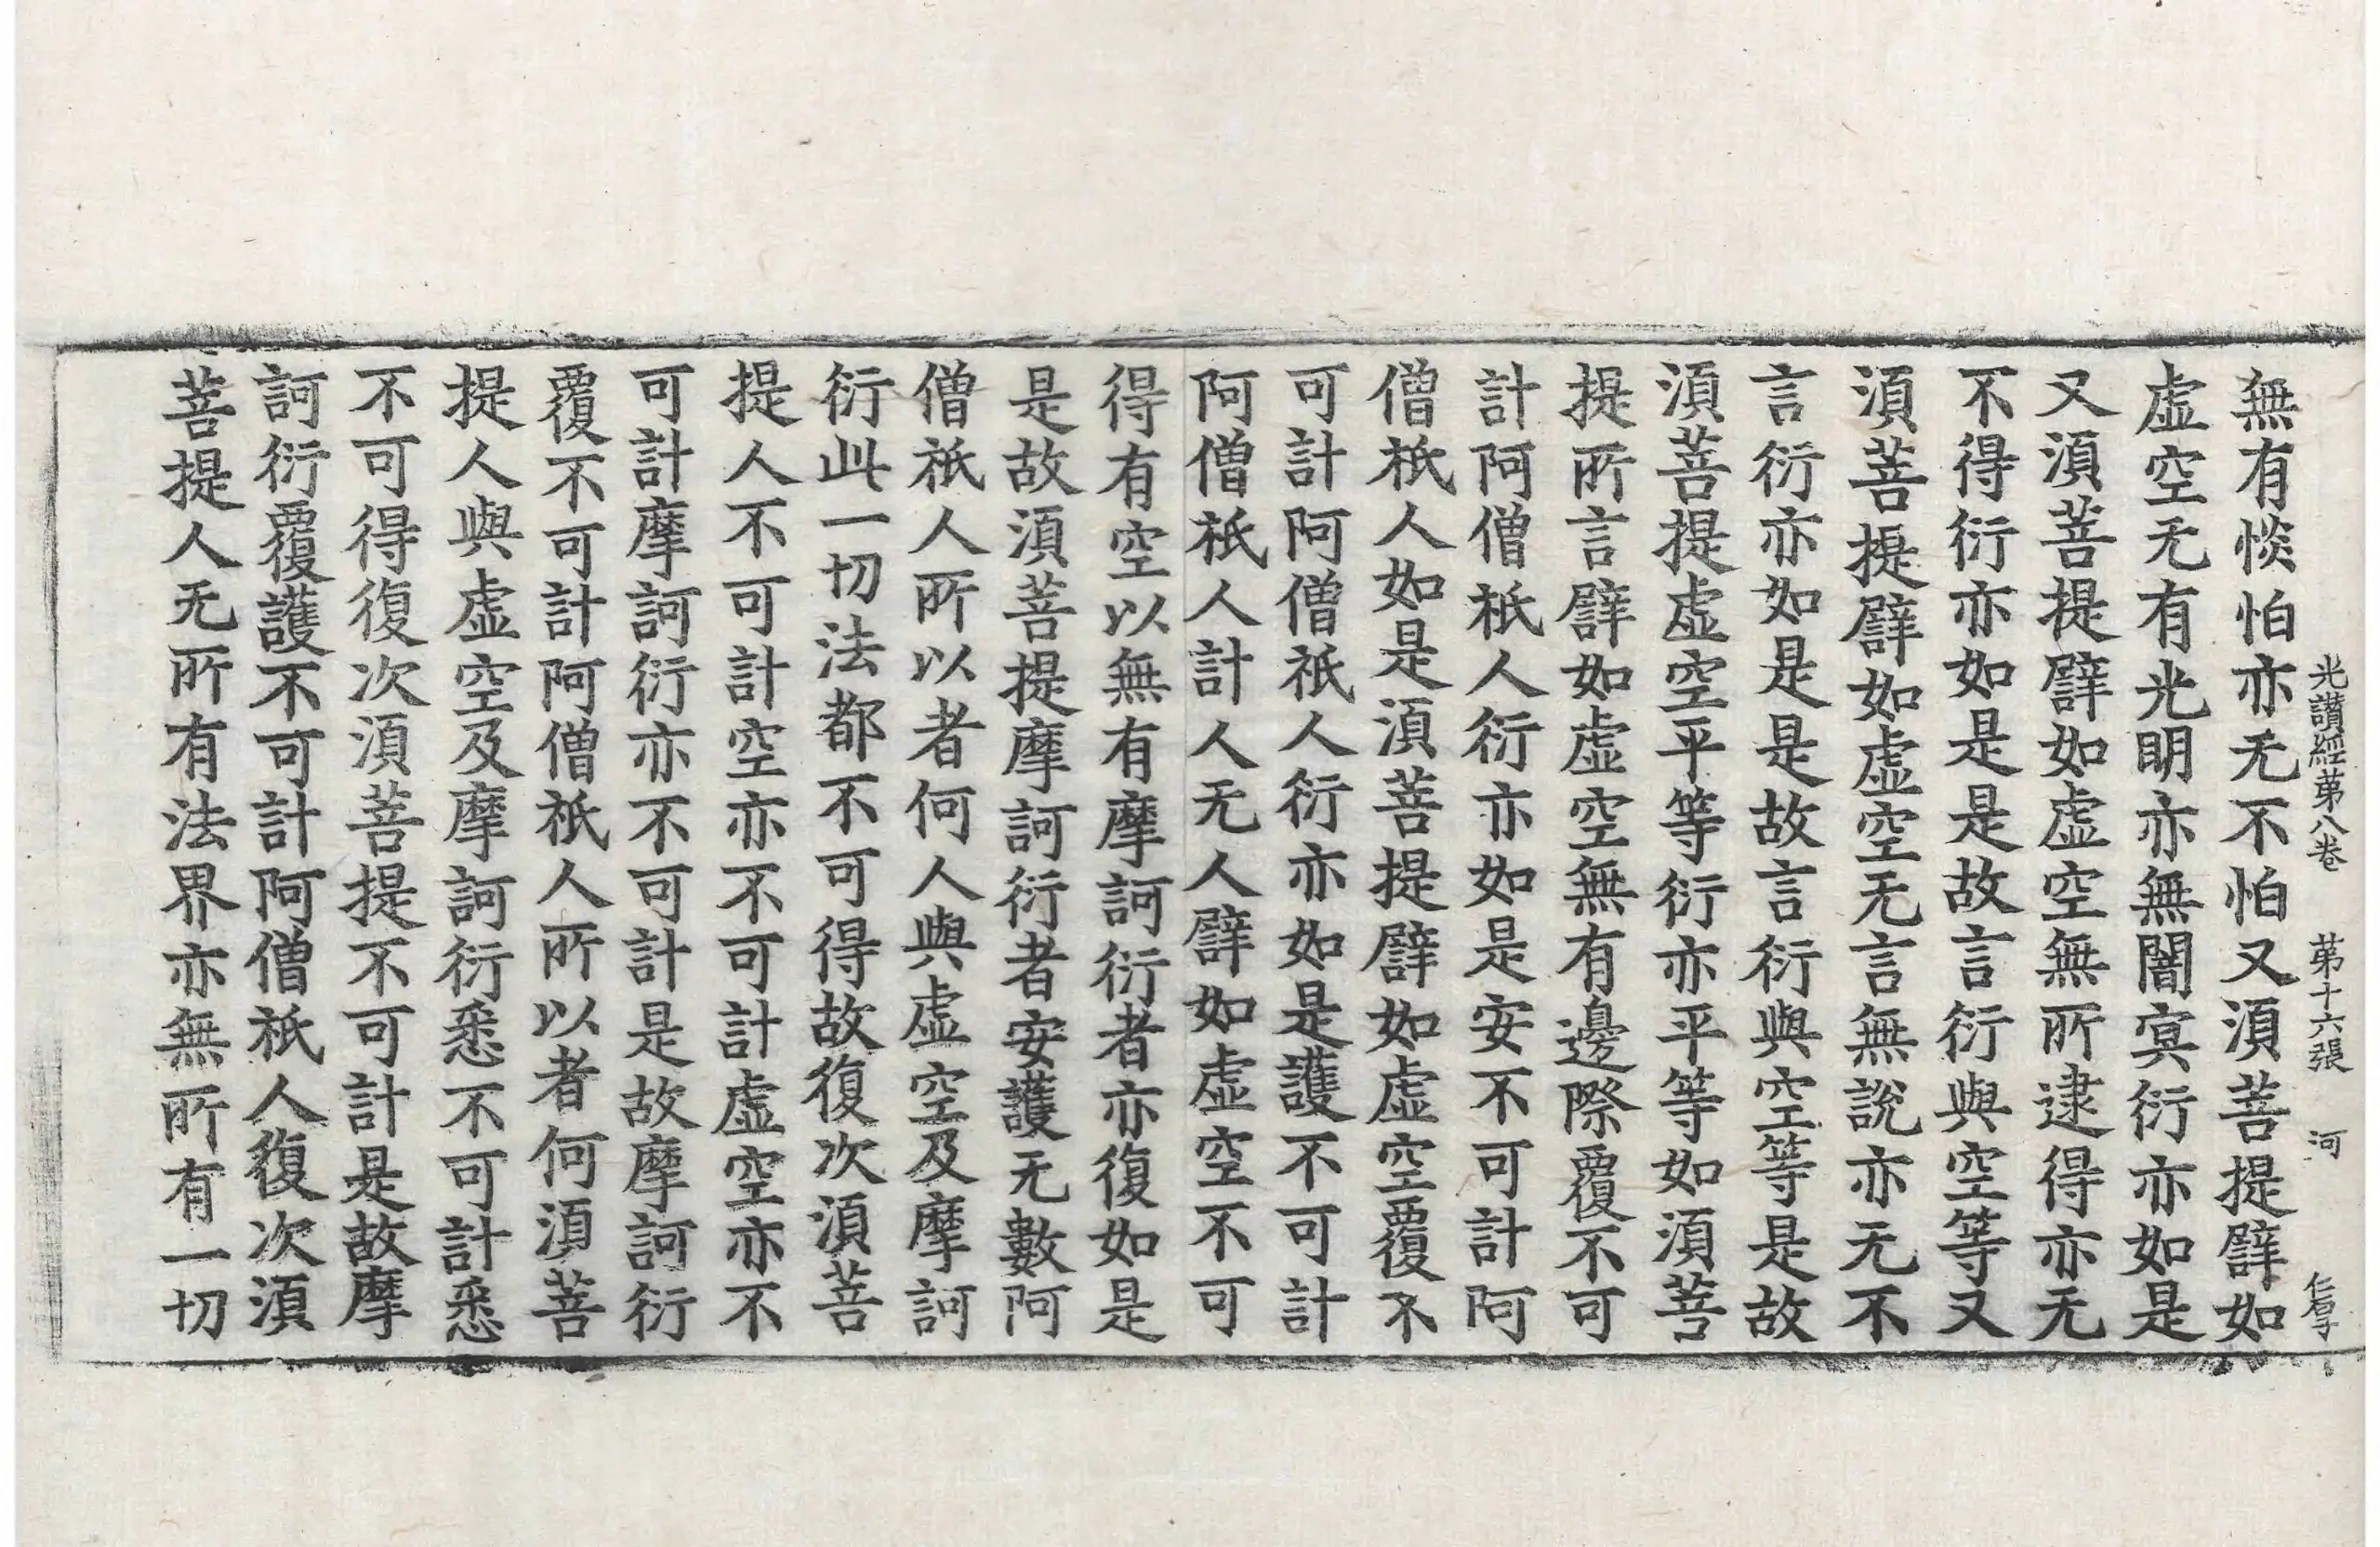 光讃經第八卷 第十六張 河 仁厚
無有惔怕亦无不怕又湏菩提譬如
虛空无有光明亦無闇㝠衍亦如是
又湏菩提譬如虛空無所逮得亦无
不得衍亦如是是故言衍與空等又
湏菩提譬如虛空无言無說亦无不
言衍亦如是是故言衍與空等是故
湏菩提虛空平等衍亦平等如湏菩
提所言譬如虛空無有邊際覆不可
計阿僧祇人衍亦如是安不可計阿
僧祇人如是湏菩提譬如虛空覆不
可計阿僧祇人衍亦如是護不可計
阿僧祇人計人无人譬如虛空不可
得有空以無有摩訶衍者亦復如是
是故湏菩提摩訶衍者安護无數阿
僧祇人所以者何人與虛空及摩訶
衍此一切法都不可得故復次湏菩
提人不可計空亦不可計虛空亦不
可計摩訶衍亦不可計是故摩訶衍
覆不可計阿僧祇人所以者何湏菩
提人與虛空及摩訶衍悉不可計悉
不可得復次湏菩提不可計是故摩
訶衍覆護不可計阿僧祇人復次湏
菩提人无所有法界亦無所有一切